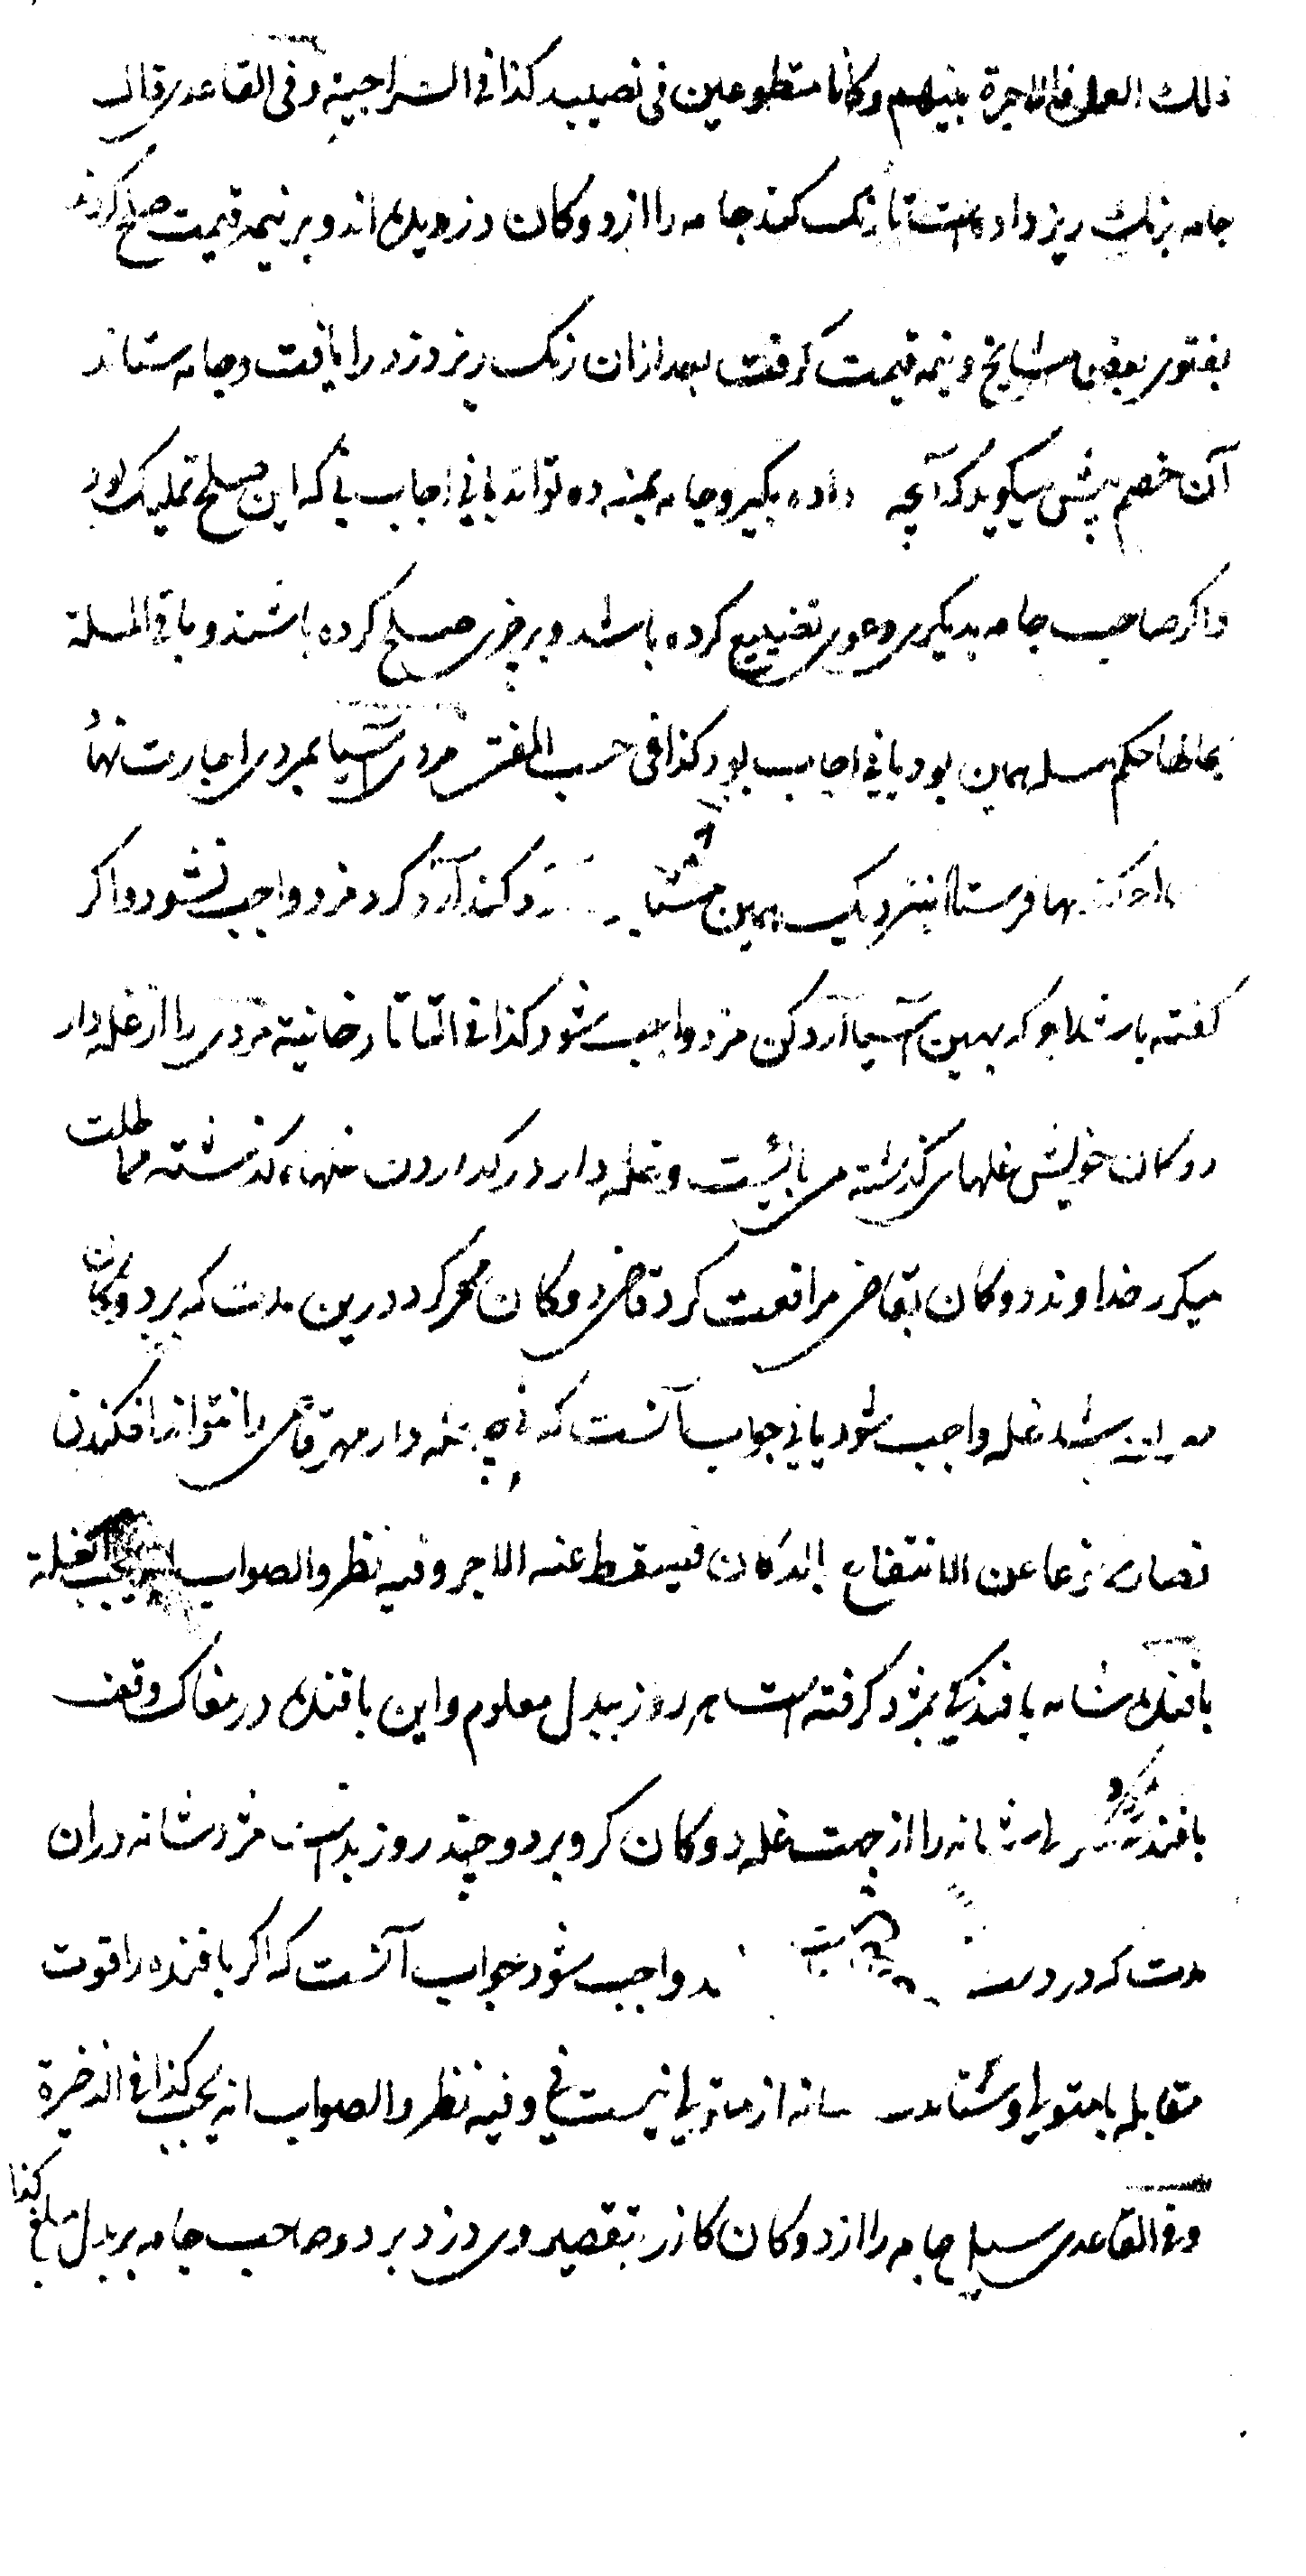 ذلك العمل فالاجرة بينهم وكانا متطوعين فى نصيبه كذا فى السراجية وفى القاعدى قال
جامه برنك ريز داده است تا رنك كند جامه را از دوكان دزديده اند وبر نيمه قيمت صلح كردند
بفتوى بعض مشايخ ونيمه قيمت كرفت بعد ازان رنك ريز دزد را يافت وجامه ستاند
آن خصم پيش ميكويد كه آنچه داده بكير وجامه بمن ده تواند يا نى اجاب نى كه اين صلح تمليك بود
واكر صاحب جامه بديكرى دعوى تضييع كرده باشد وبر چيزى صلح كرده باشند وباقى المسئلة
بحالها حكم مسئله همان بود يا نى اجاب بود كذا فى حسب المفتى مردى آسيا بمردى اجارت نهاد
فرستاد بنزديك همين آرد كند آرد كرد مزد واجب نشود واكر
كفته باشد او كه بهمين آسيا آرد كن مزد واجب شود كذا فى التاتارخانية مردى را از غله دار
دوكان خويش غلهاى كذشته مى بايست وغله دار در كذاردن غلهاء كذشته مماطلت
ميكرد خداوند دوكان بقاضى مرافعت كرد قاضى دوكان مهر كرد درين مدت كه بر دوكان
مهر باشد غله واجب شود يا نى جواب آنست كه نى چه غله دار مهر قاضى را نتواند افكندن
فصار ممنوعا عن الانتفاع بالدكان فيسقط عنه الاجر وفيه نظر والصواب انه يجب الغلة
بافنده شانه بافندكى بمزد كرفته است هر روز ببدل معلوم واين بافنده در مغاك وقف
بافندكى ميكرد شانه را از جهت غله دوكان كرو برد وچند روز بداشت مزد شانه دران
مدت كه در دست واجب شود جواب آنست كه اكر بافنده را قوت
مقابله با متولى وستاندن شانه از متولى نيست نى وفيه نظر والصواب انه يجب كذا فى الذخيرة
وفى القاعدى سيل جامه را از دوكان كازر بتقصير وى دزد برد وصاحب جامه بر بدل صلح كند